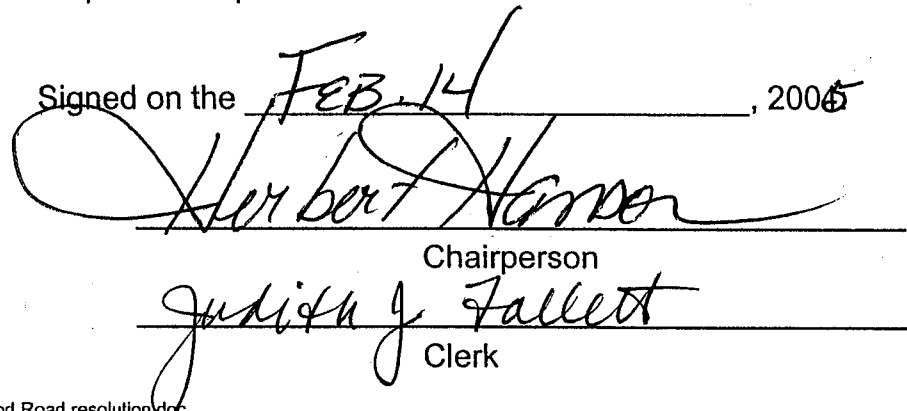 Signed on the FEB. 14, 2005
Herbert Hanson
Chairperson
Judith J. Fallett
Clerk
Road resolution.doc